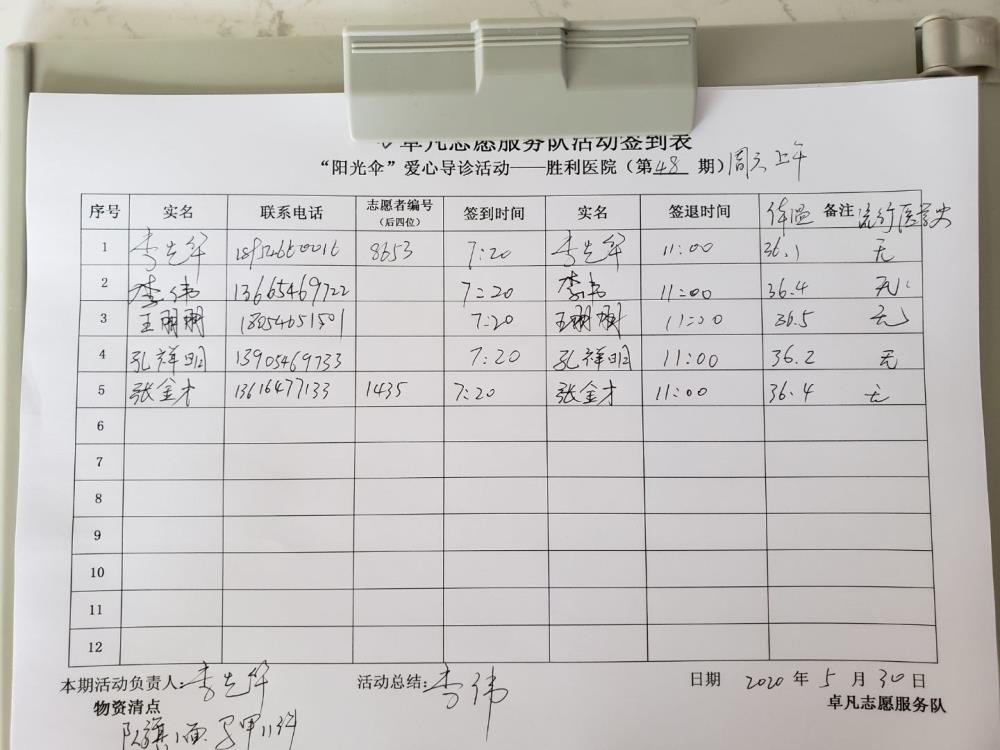 卓凡志愿服务队活动签到表
“阳光伞”爱心导诊活动——胜利医院（第48期）周六上午
序号 实名 联系电话 志愿者编号（后四位） 签到时间 实名 签退时间 体温 备注 流行医学史
1 李先华 8653 7:20 李先华 11:00 36.1 无
2 李伟 13665469722 7:20 李伟 11:00 36.4 无
3 王明明 18054651501 7:20 王明明 11:00 36.5 无
4 孔祥明 13905469733 7:20 孔祥明 11:00 36.2 无
5 张金才 13616477133 1435 7:20 张金才 11:00 36.4 无
6
7
8
9
10
11
12
本期活动负责人：李先华 活动总结：李伟 日期 2020年5月30日
物资清点 卓凡志愿服务队
队旗1面 马甲11件